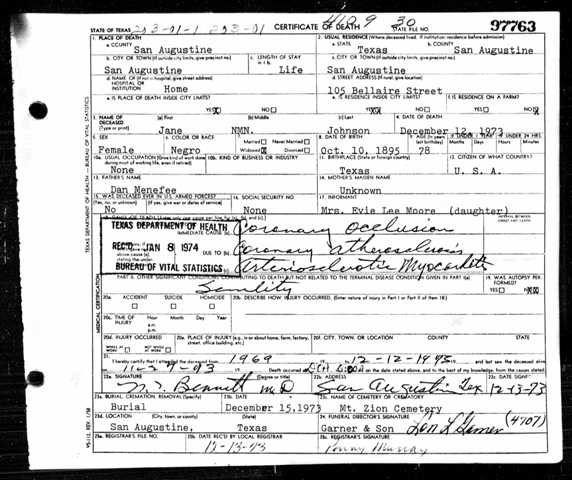 STATE OF TEXAS 203-01-1 203-01 CERTIFICATE OF DEATH 4109 30 STATE FILE NO. 97763
1. PLACE OF DEATH 2. USUAL RESIDENCE (Where deceased lived. If institution: residence before admission)
a. COUNTY San Augustine a. STATE Texas b. COUNTY San Augustine
b. CITY OR TOWN (If outside city limits, give precinct no.) c. LENGTH OF STAY in 1 b. c. CITY OR TOWN (If outside city limits, give precinct no.)
San Augustine Life San Augustine
d. NAME OF (If not in hospital, give street address) HOSPITAL OR INSTITUTION Home d. STREET ADDRESS 105 Bellaire Street
e. IS PLACE OF DEATH INSIDE CITY LIMITS? YES NO e. IS RESIDENCE INSIDE CITY LIMITS? YES NO f. IS RESIDENCE ON A FARM? YES NO
3. NAME OF DECEASED (Type or print) (a) First (b) Middle (c) Last 4. DATE OF DEATH
Jane NMN. Johnson December 12, 1973
5. SEX 6. COLOR OR RACE 7. Married Never Married Widowed Divorced 8. DATE OF BIRTH 9. AGE (In years last birthday) IF UNDER 1 YEAR Months Days IF UNDER 24 HRS Hours Min.
Female Negro Oct. 10, 1895 78
10a. USUAL OCCUPATION (Give kind of work done during most of working life, even if retired) 10b. KIND OF BUSINESS OR INDUSTRY 11. BIRTHPLACE (State or foreign country) 12. CITIZEN OF WHAT COUNTRY?
None Texas U. S. A.
13. FATHER'S NAME 14. MOTHER'S MAIDEN NAME
Dan Menefee Unknown
15. WAS DECEASED EVER IN U.S. ARMED FORCES? (Yes, no, or unknown) (If yes, give war or dates of service) 16. SOCIAL SECURITY NO. 17. INFORMANT
No None Mrs. Evie Lee Moore (daughter)
TEXAS DEPARTMENT OF HEALTH Coronary Occlusion
REC'D JAN 8 1974 DUE TO (b) Coronary Atherosclerosis
BUREAU OF VITAL STATISTICS Arteriosclerotic Myocarditis
PART II. OTHER SIGNIFICANT CONDITIONS CONTRIBUTING TO DEATH BUT NOT RELATED TO THE TERMINAL DISEASE CONDITION GIVEN IN PART I(a) 19. WAS AUTOPSY PERFORMED? YES NO
Senility
20a. ACCIDENT SUICIDE HOMICIDE 20b. DESCRIBE HOW INJURY OCCURRED. (Enter nature of injury in Part I or Part II of item 18)
20c. TIME OF INJURY Hour Month Day Year a.m. p.m.
20d. INJURY OCCURRED WHILE AT WORK NOT WHILE AT WORK 20e. PLACE OF INJURY (e.g., in or about home, farm, factory, street, office building, etc.) 20f. CITY, TOWN, OR LOCATION COUNTY STATE
21. I hereby certify that I attended the deceased from 1969 to 12-12-1973 and last saw the deceased alive
Death occurred at on the date stated above, and to the best of my knowledge, from the causes stated
22a. SIGNATURE (Degree or title) 22b. ADDRESS 22c. DATE SIGNED
Bennett M.D. San Augustine Tex 12-13-73
23a. BURIAL, CREMATION, REMOVAL (Specify) 23b. DATE 23c. NAME OF CEMETERY OR CREMATORY
Burial December 15, 1973 Mt. Zion Cemetery
23d. LOCATION (City, town, or county) (State) 24. FUNERAL DIRECTOR'S SIGNATURE
San Augustine, Texas Garner & Son (4707)
25a. REGISTRAR'S FILE NO. 25b. DATE REC'D BY LOCAL REGISTRAR 25c. REGISTRAR'S SIGNATURE
12-13-73 Murray
TEXAS DEPARTMENT OF HEALTH - BUREAU OF VITAL STATISTICS
MEDICAL CERTIFICATION